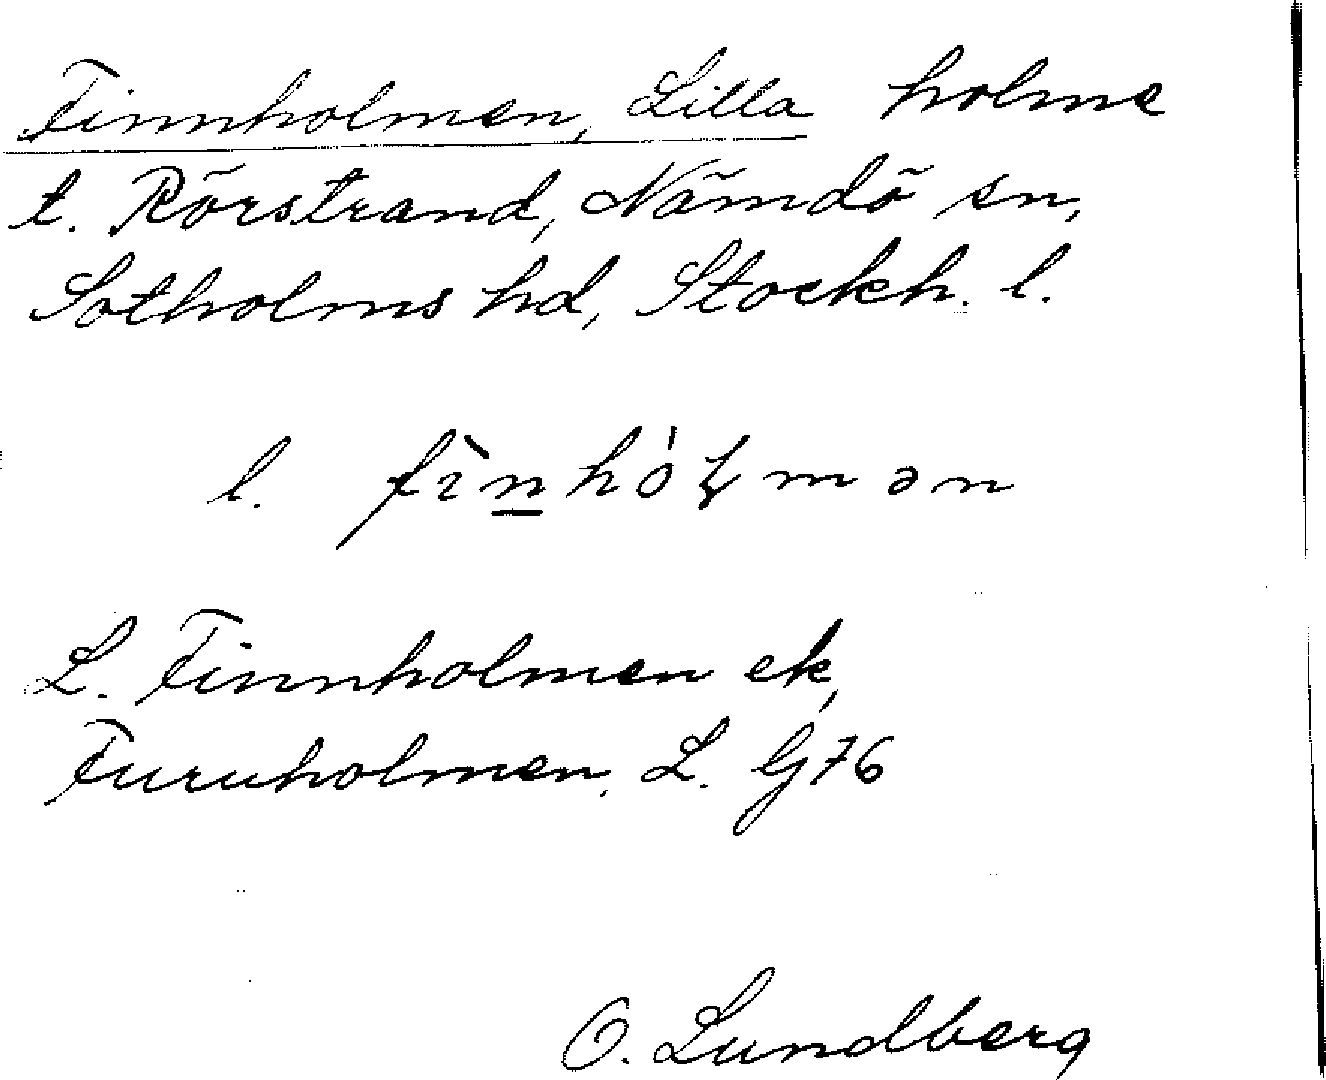 Finnholmen, Lilla holme
t. Rörstrand, Nämdö sn,
Sotholms hd, Stockh. l.
l.
L. Finnholmen ek,
Furuholmen, L. G76
O. Lundberg